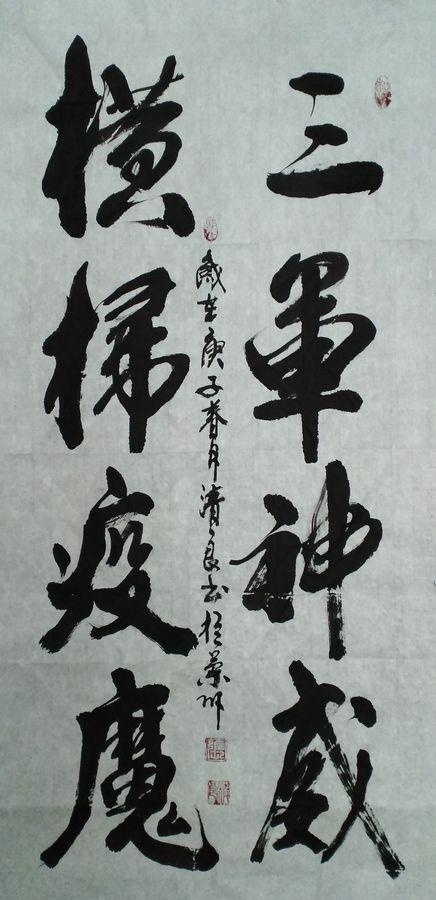 三軍神威
橫掃疫魔
歲在庚子春月清良書於蘭州